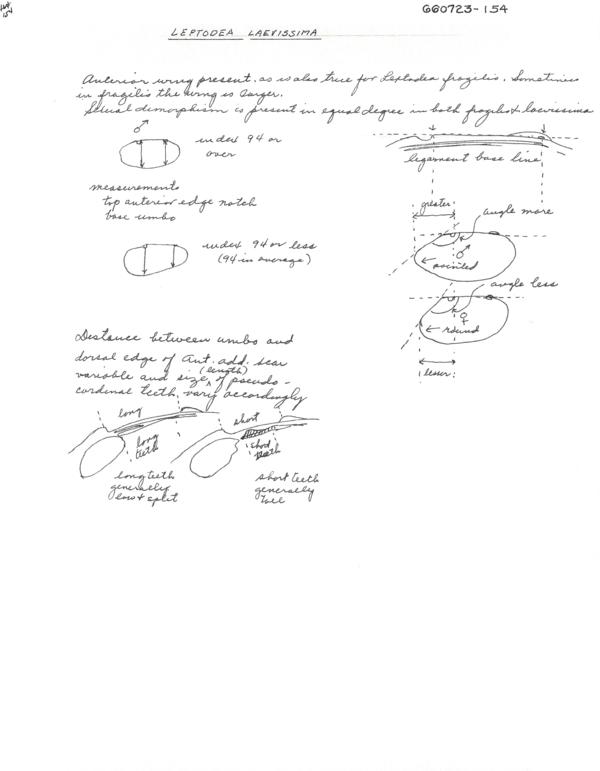 GG0723-154
LEPTODEA LAEVISSIMA
Anterior wing present, as is also true for Leptodea fragilis. Sometimes
in fragilis the wing is larger.
Sexual dimorphism is present in equal degree in both fragilis & laevissima
♂
index 94 or
over
ligament base line
measurements
top anterior edge notch
base umbo
greater
angle more
♂
pointed
index 94 or less
(94 in average)
angle less
♀
round
lesser
Distance between umbo and
dorsal edge of Ant. add. scar
variable and size (length) of pseudo-
cardinal teeth vary accordingly
long
short
long
teeth
short
teeth
long teeth
generally
low & split
short teeth
generally
tall